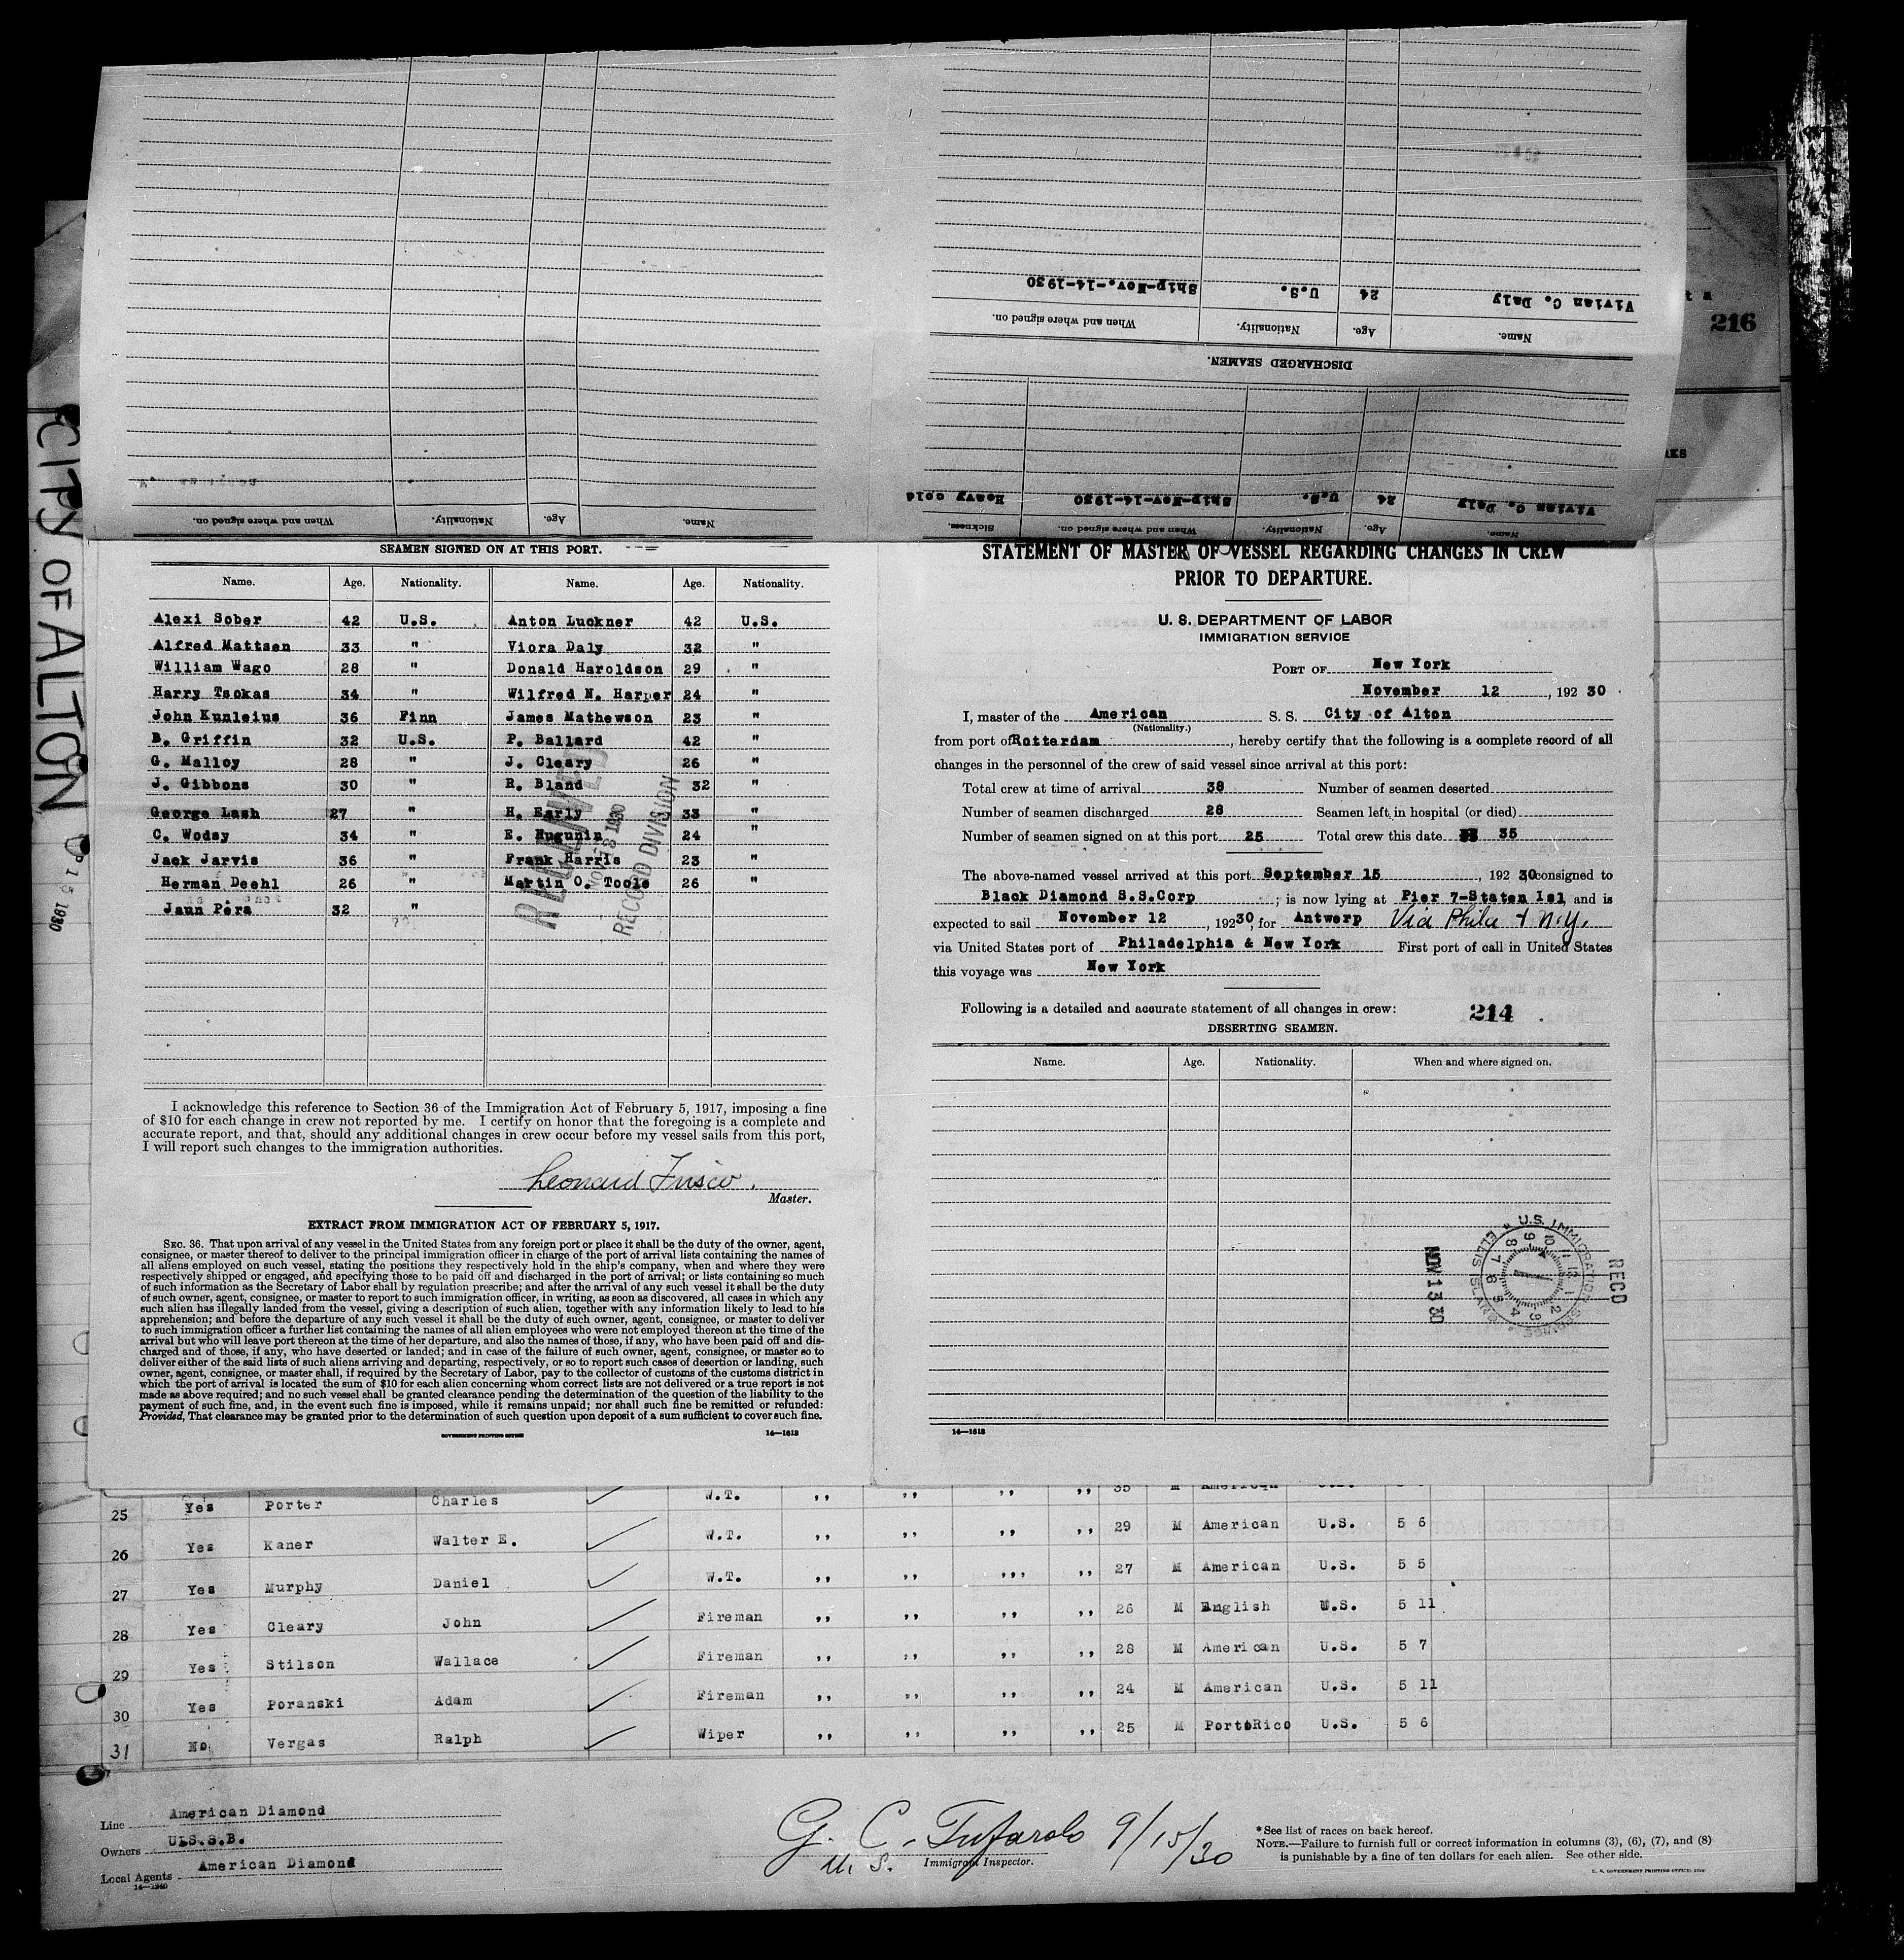 216
CITY OF ALTON
15 1930
Vivian C. Daly 24 U.S. Ship-Nov.-14-1930
Name. Age. Nationality. When and where signed on.
DISCHARGED SEAMEN.
Vivian C. Daly 24 U.S. Ship-Nov-14-1930 Heavy cold
Name. Age. Nationality. When and where signed on. Sickness.
Name. Age. Nationality. When and where signed on.
SEAMEN SIGNED ON AT THIS PORT.
Name. Age. Nationality. Name. Age. Nationality.
Alexi Sober 42 U.S. Anton Luckner 42 U.S.
Alfred Mattsen 33 " Viora Daly 32 "
William Wago 28 " Donald Haroldson 29 "
Harry Tsokas 34 " Wilfred N. Harper 24 "
John Kunleius 36 Finn James Mathewson 23 "
B. Griffin 32 U.S. P. Ballard 42 "
G. Malloy 28 " J. Cleary 26 "
J. Gibbons 30 " R. Bland 32 "
George Lash 27 " H. Early 33 "
C. Wodsy 34 " E. Hugunin 24 "
Jack Jarvis 36 " Frank Harris 23 "
Herman Deehl 26 " Martin O. Toole 26 "
Jaun Pera 32 "
RECEIVED
NOV 18 1930
RECORD DIVISION
I acknowledge this reference to Section 36 of the Immigration Act of February 5, 1917, imposing a fine
of $10 for each change in crew not reported by me. I certify on honor that the foregoing is a complete and
accurate report, and that, should any additional changes in crew occur before my vessel sails from this port,
I will report such changes to the immigration authorities.
Leonard Frisco.
Master.
EXTRACT FROM IMMIGRATION ACT OF FEBRUARY 5, 1917.
SEC. 36. That upon arrival of any vessel in the United States from any foreign port or place it shall be the duty of the owner, agent,
consignee, or master thereof to deliver to the principal immigration officer in charge of the port of arrival lists containing the names of
all aliens employed on such vessel, stating the positions they respectively hold in the ship's company, when and where they were
respectively shipped or engaged, and specifying those to be paid off and discharged in the port of arrival; or lists containing so much
of such information as the Secretary of Labor shall by regulation prescribe; and after the arrival of any such vessel it shall be the duty
of such owner, agent, consignee, or master to report to such immigration officer, in writing, as soon as discovered, all cases in which any
such alien has illegally landed from the vessel, giving a description of such alien, together with any information likely to lead to his
apprehension; and before the departure of any such vessel it shall be the duty of such owner, agent, consignee, or master to deliver
to such immigration officer a further list containing the names of all alien employees who were not employed thereon at the time of the
arrival but who will leave port thereon at the time of her departure, and also the names of those, if any, who have been paid off and dis-
charged and of those, if any, who have deserted or landed; and in case of the failure of such owner, agent, consignee, or master so to
deliver either of the said lists of such aliens arriving and departing, respectively, or so to report such cases of desertion or landing, such
owner, agent, consignee, or master shall, if required by the Secretary of Labor, pay to the collector of customs of the customs district in
which the port of arrival is located the sum of $10 for each alien concerning whom correct lists are not delivered or a true report is not
made as above required; and no such vessel shall be granted clearance pending the determination of the question of the liability to the
payment of such fine, and, in the event such fine is imposed, while it remains unpaid; nor shall such fine be remitted or refunded:
Provided, That clearance may be granted prior to the determination of such question upon deposit of a sum sufficient to cover such fine.
GOVERNMENT PRINTING OFFICE 14—1613
STATEMENT OF MASTER OF VESSEL REGARDING CHANGES IN CREW
PRIOR TO DEPARTURE.
U. S. DEPARTMENT OF LABOR
IMMIGRATION SERVICE
PORT OF New York
November 12, 192 30
I, master of the American S. S. City of Alton
(Nationality.)
from port of Rotterdam, hereby certify that the following is a complete record of all
changes in the personnel of the crew of said vessel since arrival at this port:
Total crew at time of arrival 38 Number of seamen deserted
Number of seamen discharged 28 Seamen left in hospital (or died)
Number of seamen signed on at this port 25 Total crew this date 35
The above-named vessel arrived at this port September 15, 192 30 consigned to
Black Diamond S.S.Corp; is now lying at Pier 7-Staten Isl and is
expected to sail November 12, 192 30, for Antwerp Via Phila & N.Y.
via United States port of Philadelphia & New York First port of call in United States
this voyage was New York
Following is a detailed and accurate statement of all changes in crew: 214
DESERTING SEAMEN.
Name. Age. Nationality. When and where signed on.
NOV 13 30
U.S. IMMIGRATION SERVICE ELLIS ISLAND
RECD
14—1613
25 Yes Porter Charles W.T. ,, ,, ,, ,, 35 M American U.S.
26 Yes Kaner Walter E. W.T. ,, ,, ,, ,, 29 M American U.S. 5 6
27 Yes Murphy Daniel W.T. ,, ,, ,, ,, 27 M American U.S. 5 5
28 Yes Cleary John Fireman ,, ,, ,, ,, 26 M English U.S. 5 11
29 Yes Stilson Wallace Fireman ,, ,, ,, ,, 28 M American U.S. 5 7
30 Yes Poranski Adam Fireman ,, ,, ,, ,, 24 M American U.S. 5 11
31 No Vergas Ralph Wiper ,, ,, ,, ,, 25 M PortoRico U.S. 5 6
Line American Diamond
Owners U.S.S.B.
Local Agents American Diamond
14—1240
G. C. Tufarolo 9/15/30
U. S. Immigrant Inspector.
*See list of races on back hereof.
NOTE.—Failure to furnish full or correct information in columns (3), (6), (7), and (8)
is punishable by a fine of ten dollars for each alien. See other side.